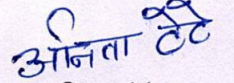 अनिता टेटे